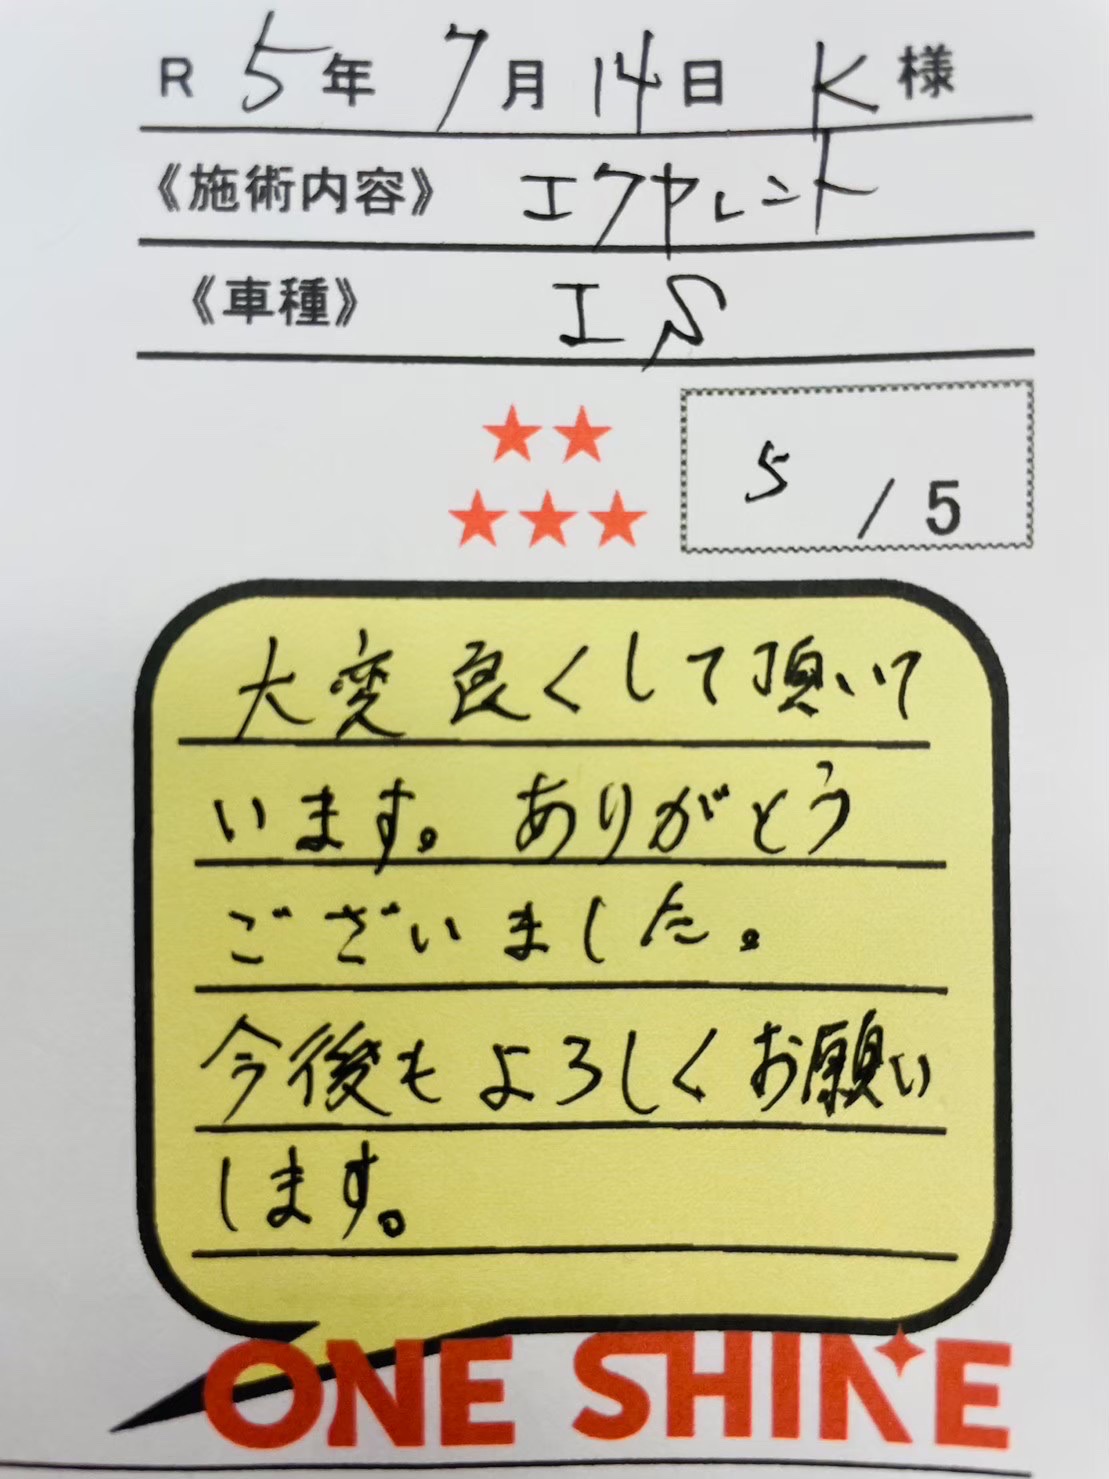 R 5年 7月 14日 K 様
《施術内容》 エクヤレント
《車種》 IS
5 / 5
大変良くして頂いて
います。ありがとう
ございました。
今後もよろしくお願い
します。
ONE SHINE